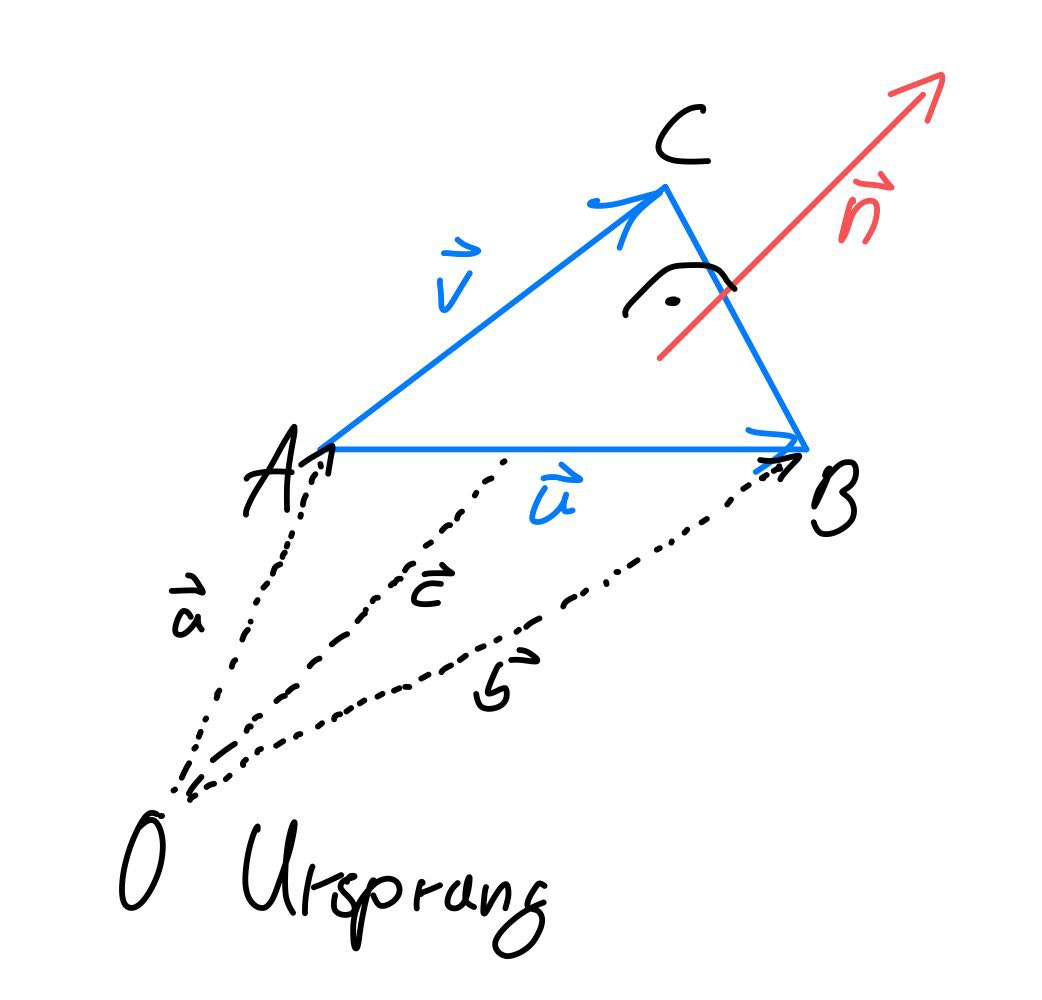 C
n⃗
v⃗
A
u⃗
B
a⃗
c⃗
b⃗
O Ursprung